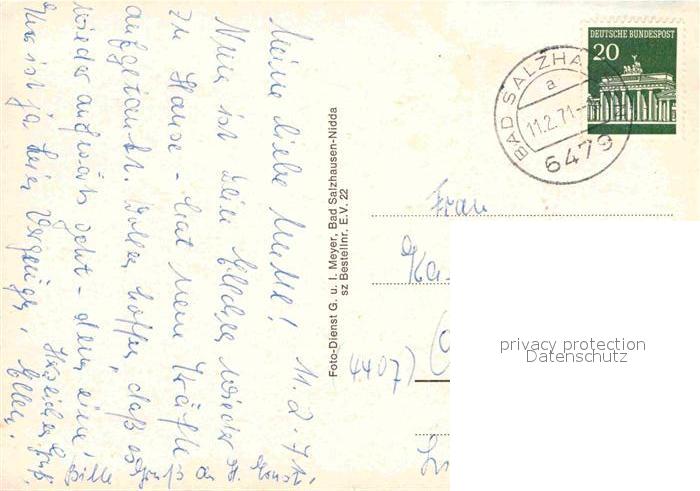 Meine liebe Mutti! 11.2.71.
Nun ist Dein Ellchen wieder
zu Hause - hat neue Kräfte
aufgetankt. Wollen hoffen, daß es
wieder aufwärts geht - denn eine
ist ja kein Vergnügen.
Herzliche
Ellen.
Bitte Gruß an
DEUTSCHE BUNDESPOST
20
BAD SALZHA
a
11.2.71
6479
Foto-Dienst G. u. I. Meyer, Bad Salzhausen-Nidda
sz Bestellnr. E.V. 22
Frau
4407)
privacy protection
Datenschutz